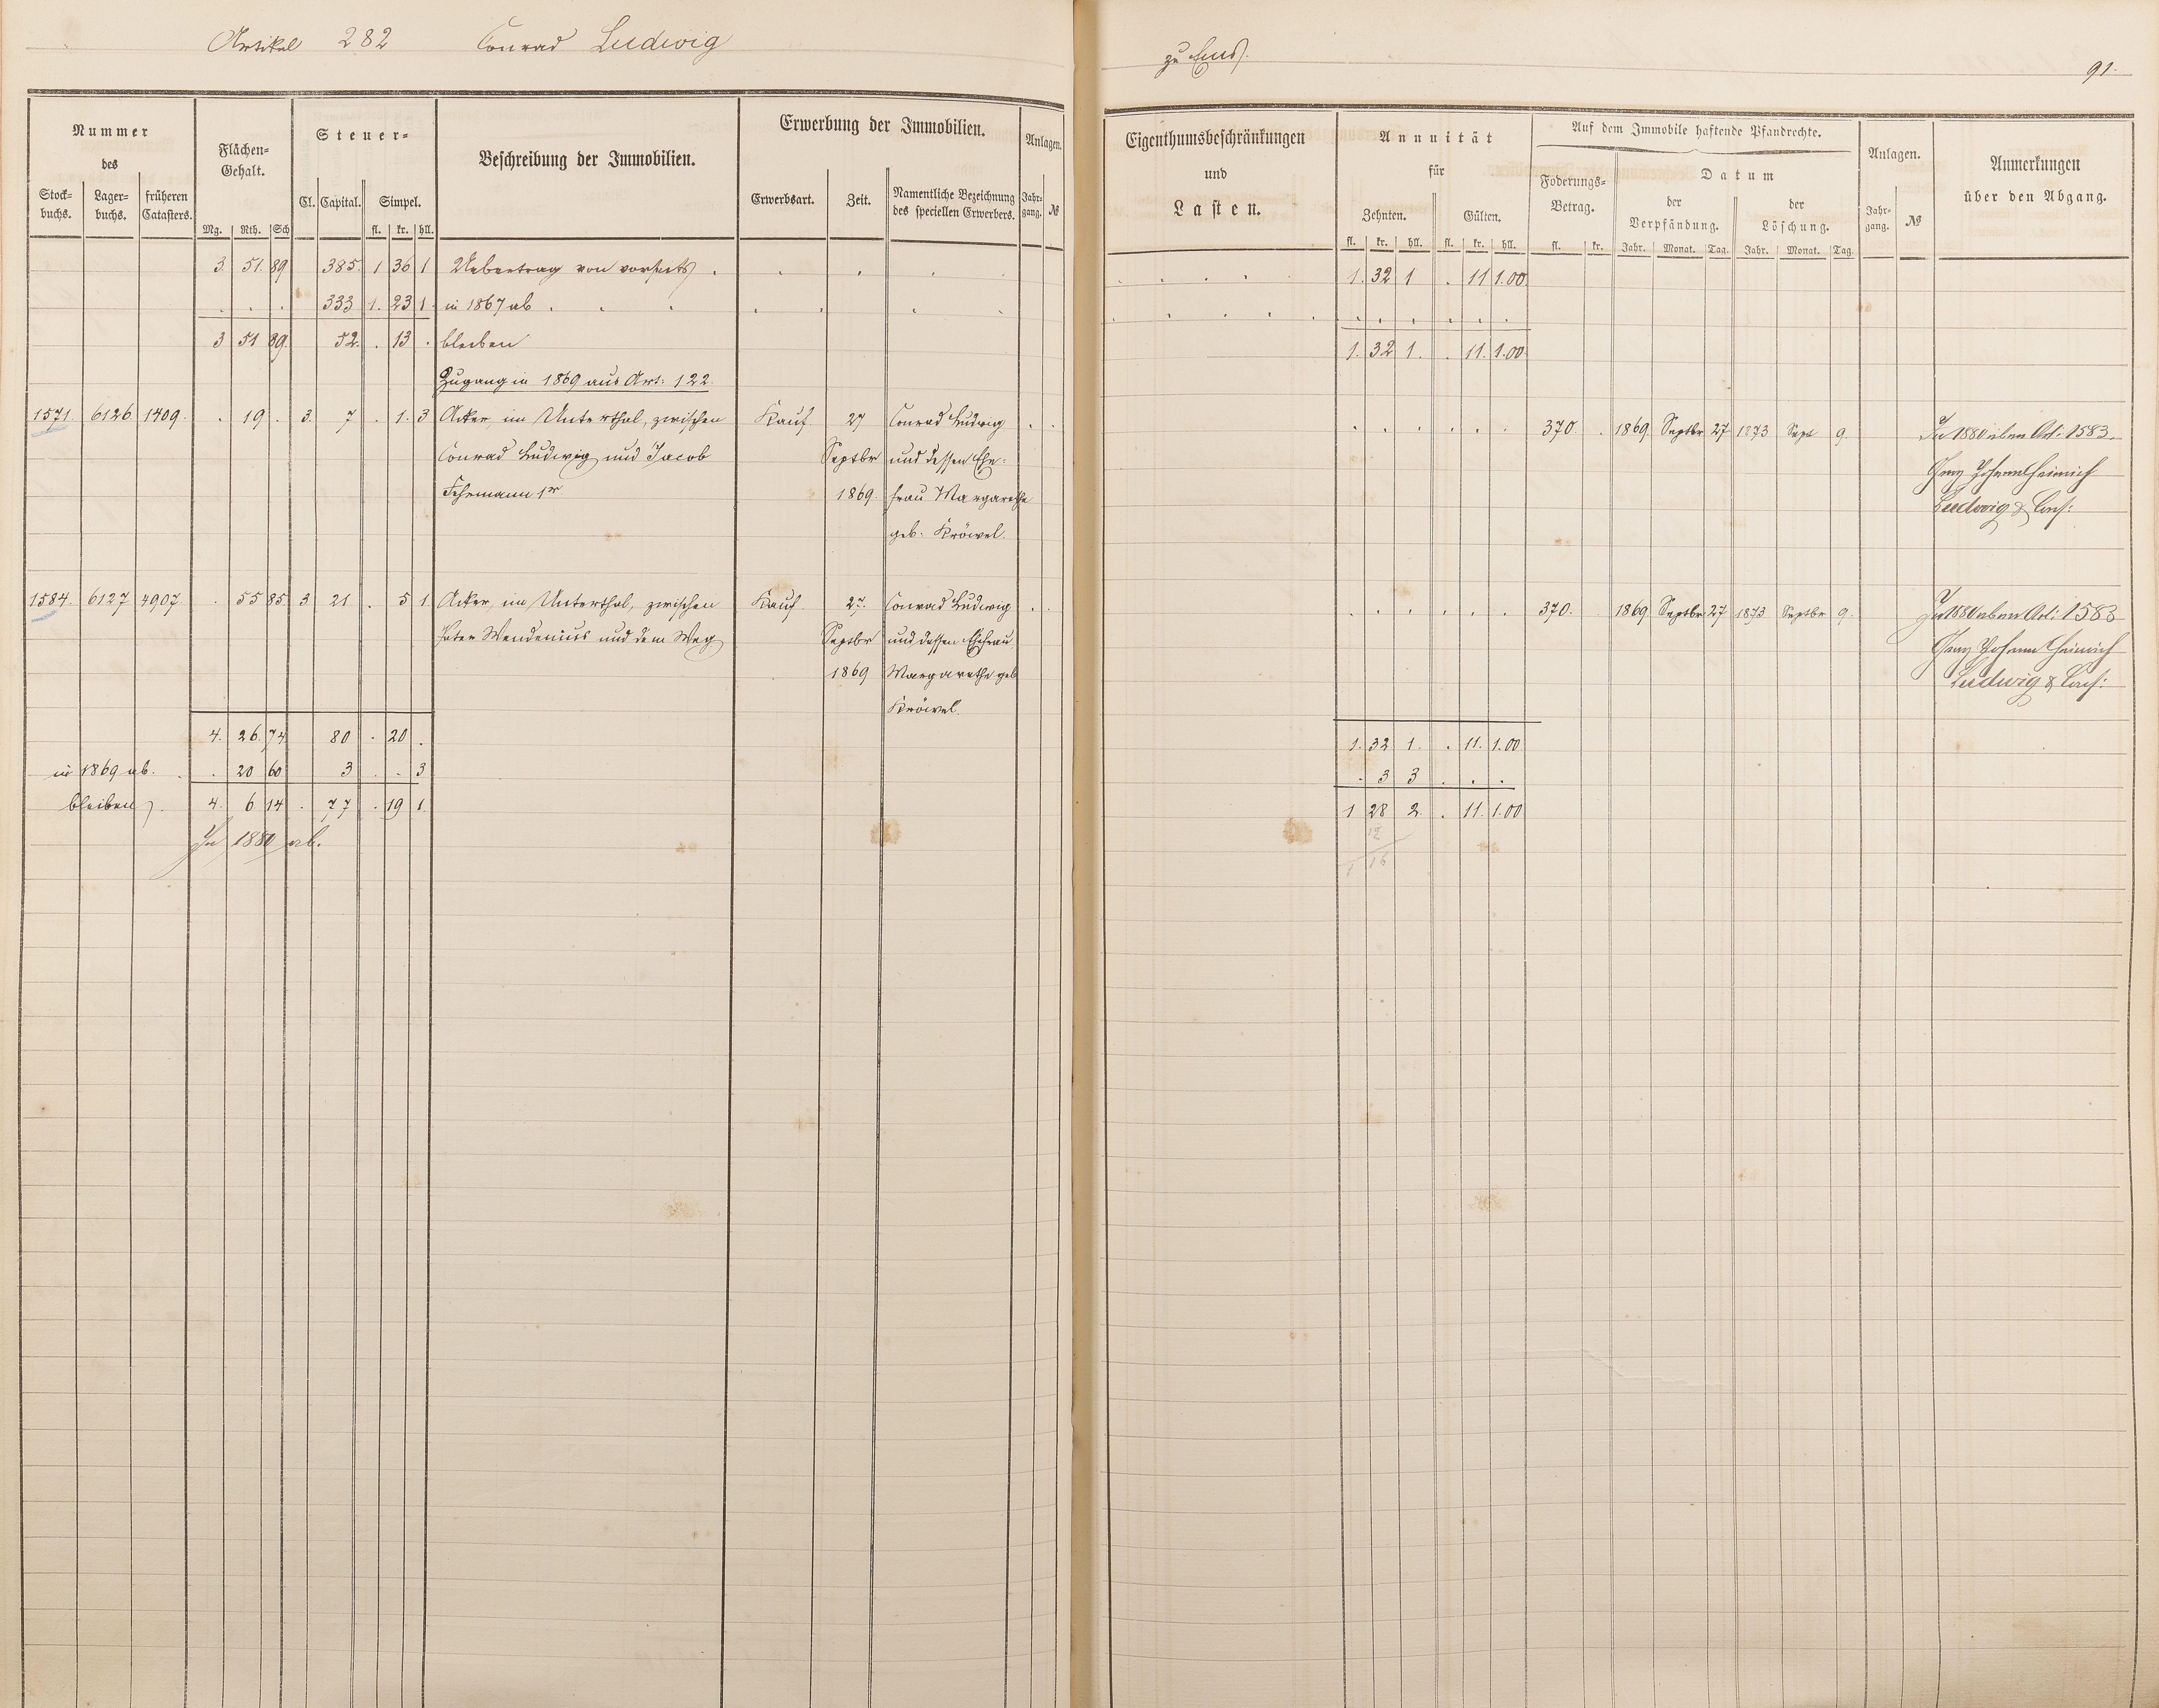 Artikel 282 Conrad Ludwig
zu Ems.
91.
Nummer des
Stock-buchs. Lager-buchs. früheren Catasters.
Flächen-Gehalt.
Mg. Rth. Sch
Steuer-
Cl. Capital. Simpel.
fl. kr. hll.
Beschreibung der Immobilien.
Erwerbung der Immobilien.
Erwerbsart. Zeit. Namentliche Bezeichnung des speciellen Erwerbers.
Anlagen.
Jahr-gang. №
Eigenthumsbeschränkungen und Lasten.
Annuität für
Zehnten. Gülten.
fl. kr. hll. fl. kr. hll.
Auf dem Immobile haftende Pfandrechte.
Foderungs-Betrag.
fl. kr.
Datum
der Verpfändung. der Löschung.
Jahr. Monat. Tag. Jahr. Monat. Tag.
Anlagen.
Jahr-gang. №
Anmerkungen über den Abgang.
3. 51. 89 385. 1 36 1 Uebertrag von vorseits . 1. 32 1 . 11 1.00.
333 1. 23 1. in 1867 ab
3 51 89. 52. . 13 . bleiben 1. 32 1. . 11. 1.00
Zugang in 1869 aus Art: 122.
1571. 6126 1409. . 19 . 3. 7 . 1. 3 Acker im Unterthal, zwischen Kauf 27 Conrad Ludwig 370 . 1869. Septbr 27 1873 Sept 9. In 1880 Art: 1583.
Conrad Ludwig und Jacob Septbr und dessen Ehe- Johann Heinrich
1r 1869. frau Margarethe Ludwig & Cons:
geb. Kröwel.
1584. 6127 4907. . 55 85 3 21 . 5 1 Acker, im Unterthal, zwischen Kauf 27. Conrad Ludwig 370. 1869 Septbr 27 1873 Septbr 9. In 1880 Art: 1583
Peter Wendenius und dem Weg Septbr und dessen Ehefrau Johann Heinrich
1869 Margarethe geb Ludwig & Cons:
Kröwel.
4. 26. 74 80 . 20 . 1. 32 1. . 11. 1.00
in 1869 ab. . 20 60 3 . . 3 . 3 3 . . .
bleiben 4. 6 14 . 77 . 19 1. 1 28 2. . 11. 1.00
In 1880 ab. 12
1 16